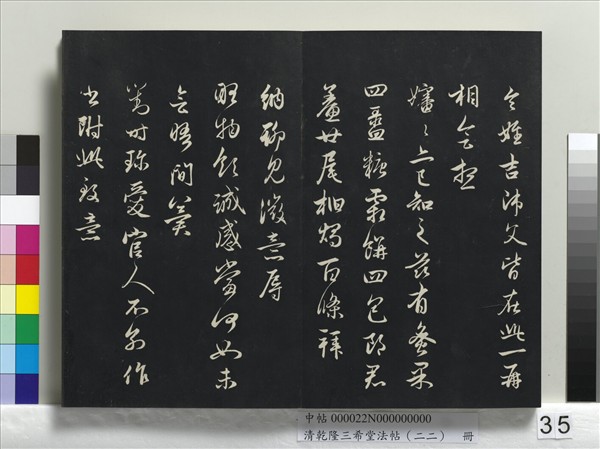 令姪吉沛父皆在此一再
相會想
嬸嬸上已知之茲有登果
四疊糖霜餅四包郎君
鯗廿尾柏燭百條拜
納聊見微意辱
貺物領誠感當何如未
會晤間冀
若时珎愛官人不別作
書附此致意
中帖 000022N000000000
清乾隆三希堂法帖（二二） 冊
35